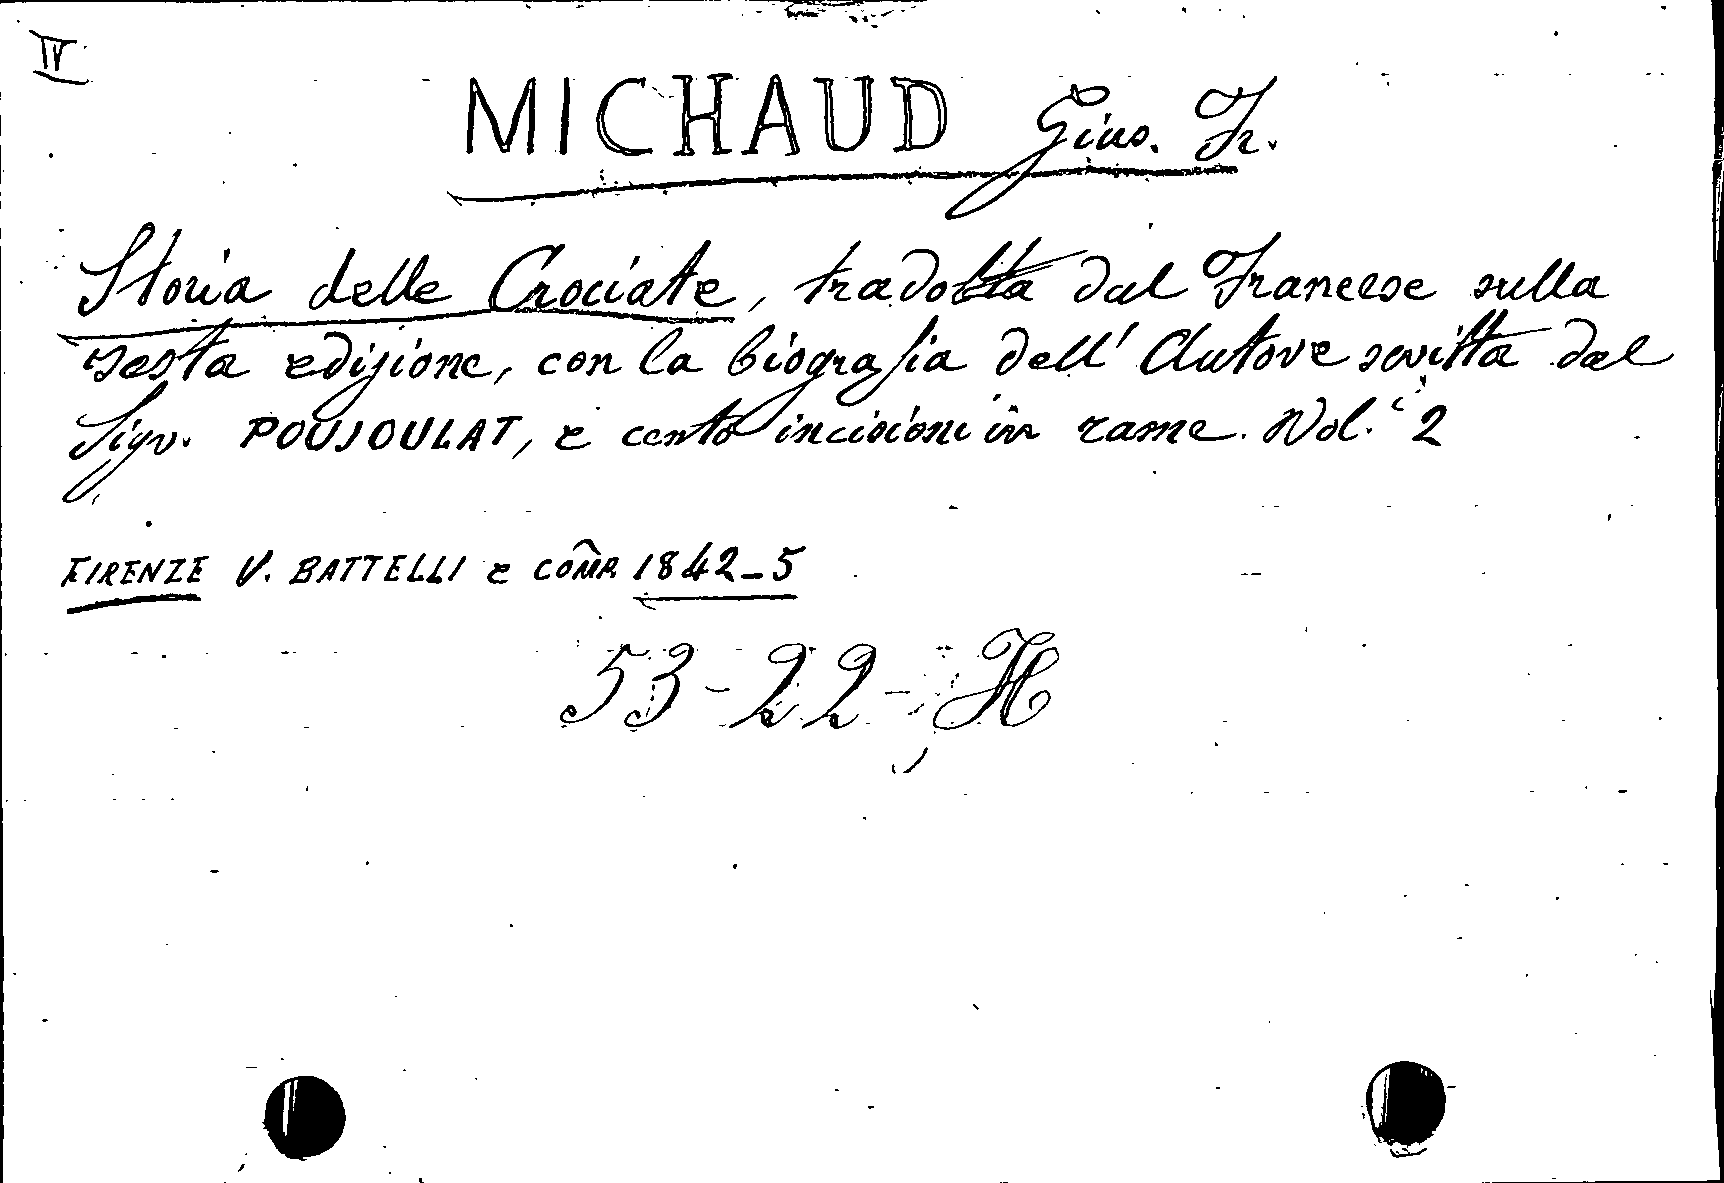 IV
MICHAUD Gius. Fr.
Storia delle Crociate, tradotta dal Francese sulla
sesta edizione, con la biografia dell' Autore scritta dal
Sigr. POUJOULAT, e cento incisioni in rame. Vol. i 2
FIRENZE V. BATTELLI e COMP. 1842-5
53-22-H